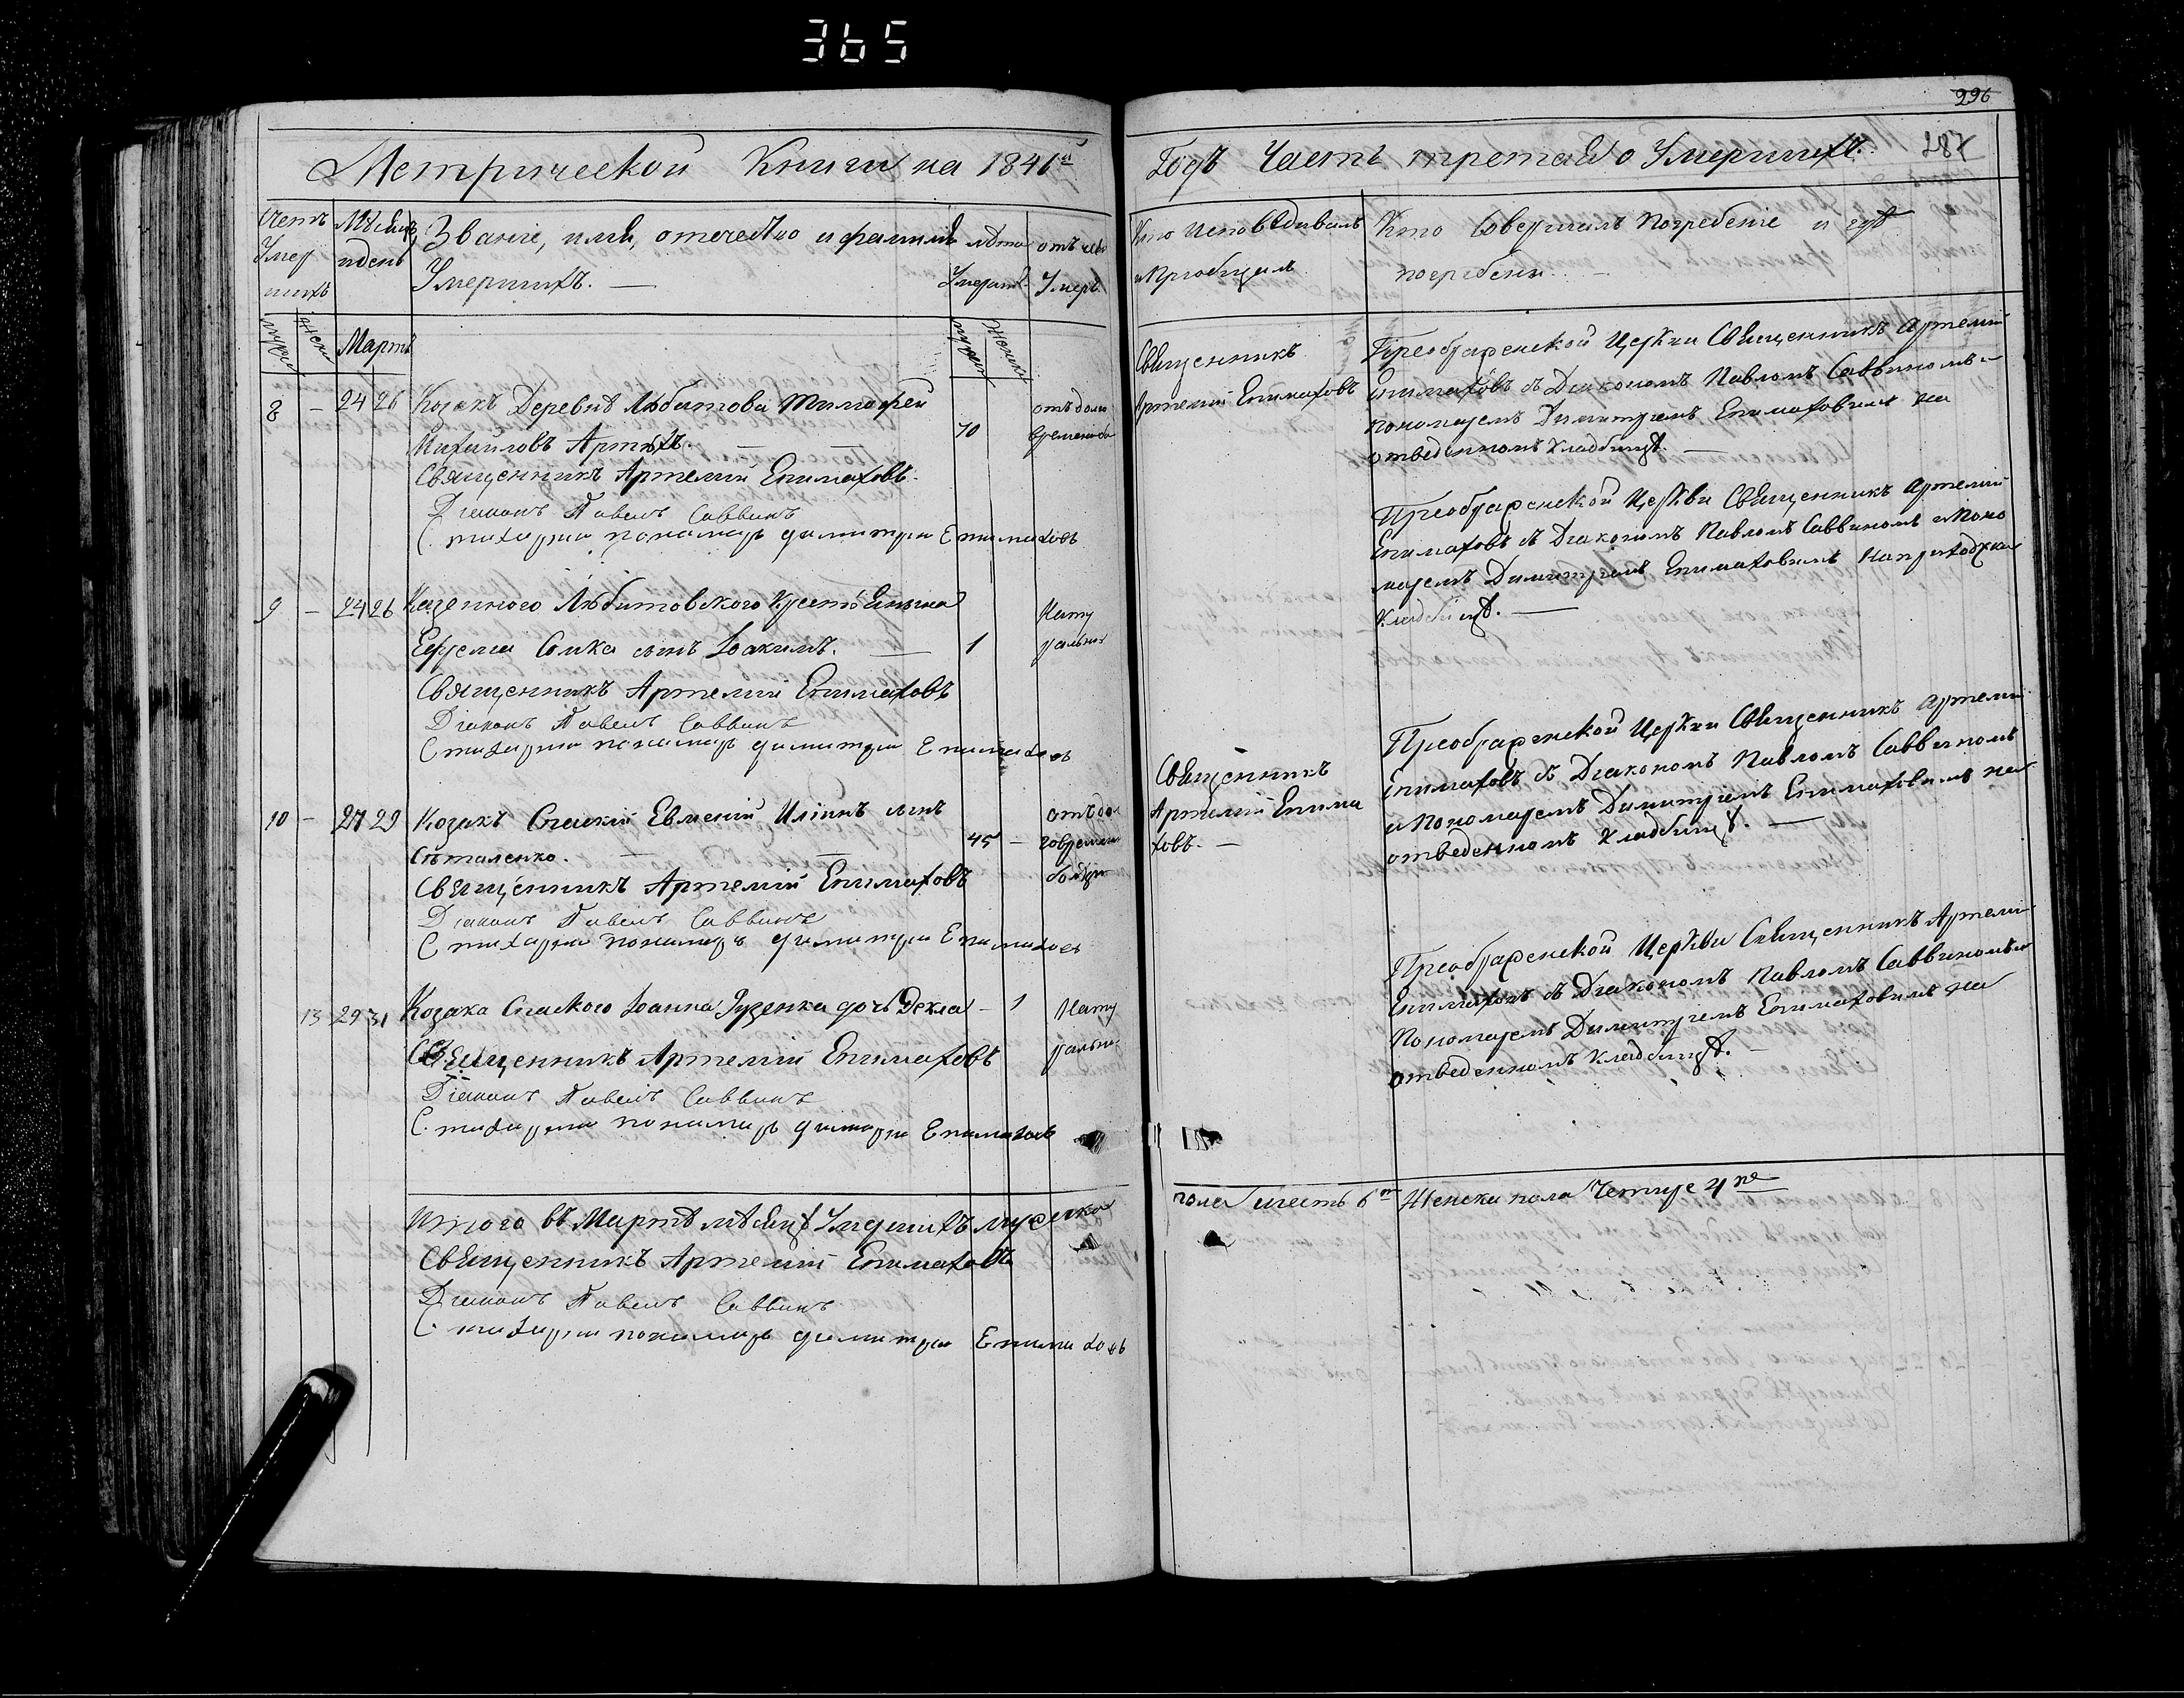 365
996
287
Метрической Книги на 1841й Годъ Часть третая о Умершихъ.
Счетъ Умер шихъ
Мѣсяцъ и день
Званіе, имя, отечество и фамилія Умершихъ. —
лѣта Умерш.
отъ чего Умеръ
Кто исповѣдывалъ и Пріобщалъ
Кто Совершалъ Погребеніе и гдѣ погребены. —
мужеск женск
Мартъ
мужеск женск
8 — 24 26 Козакъ Деревнѣ Любитова Тимофей
Михайловъ Артюхъ. 70
отъ долго
временной
Священникъ Артемій Епимаховъ.
Діаконъ Павелъ Саввинъ
Стихарни пономаръ димитри Епимаховъ
Священникъ
Артемій Епимаховъ
Преображенской Церкви Священникъ Артемий
Епимаховъ съ Діакономъ Павломъ Саввиномъ и
пономаремъ Димитріемъ Епимаховимъ на
отведенномъ Кладбищѣ. —
9 — 24 26 Казеннаго Любитовского Крестьянина
Ефрема Сомка сынъ Іоакимъ. — 1
Нату
ральной
Священникъ Артемій Епимаховъ
Діаконъ Павелъ Саввинъ
Стихарни пономаръ димитри Епимаховъ
Преображенской Церкви Священникъ Артемій
Епимаховъ съ Діакономъ Павломъ Саввиномъ и Поно
маремъ Димитріемъ Епимаховимъ На приходском
Кладбищѣ. —
10 — 27 29 Козакъ Спаскій Евмений Иліинъ сынъ
45 —
отъ дол
говременн
болезни
Священникъ Артемій Епимаховъ
Діаконъ Павелъ Саввинъ
Стихарни пономаръ димитри Епимаховъ
Священникъ
Артемій Епима
ховъ. —
Преображенской Церкви Священникъ Артемий
Епимаховъ съ Діакономъ Павломъ Саввиномъ
и Пономаремъ Димитріемъ Епимаховимъ на
отведенномъ Кладбищѣ. —
13 29 31 Козака Спаского Іоанна Рузенка дочь Фекла — 1
Нату
ральн
Священникъ Артемій Епимаховъ
Діаконъ Павелъ Саввинъ
Стихарни пономаръ димитри Епимаховъ
Преображенской Церкви Священникъ Артемий
Епимаховъ съ Діакономъ Павломъ Саввиномъ и
Пономаремъ Димитріемъ Епимаховимъ на
отведенномъ Кладбищѣ. —
Итого въ Мартѣ мѣсяцѣ Умершихъ мужеска пола шесть 6ть Женска пола Четире 4ре
Священникъ Артемій Епимаховъ
Діаконъ Павелъ Саввинъ
Стихарни пономаръ димитри Епимаховъ